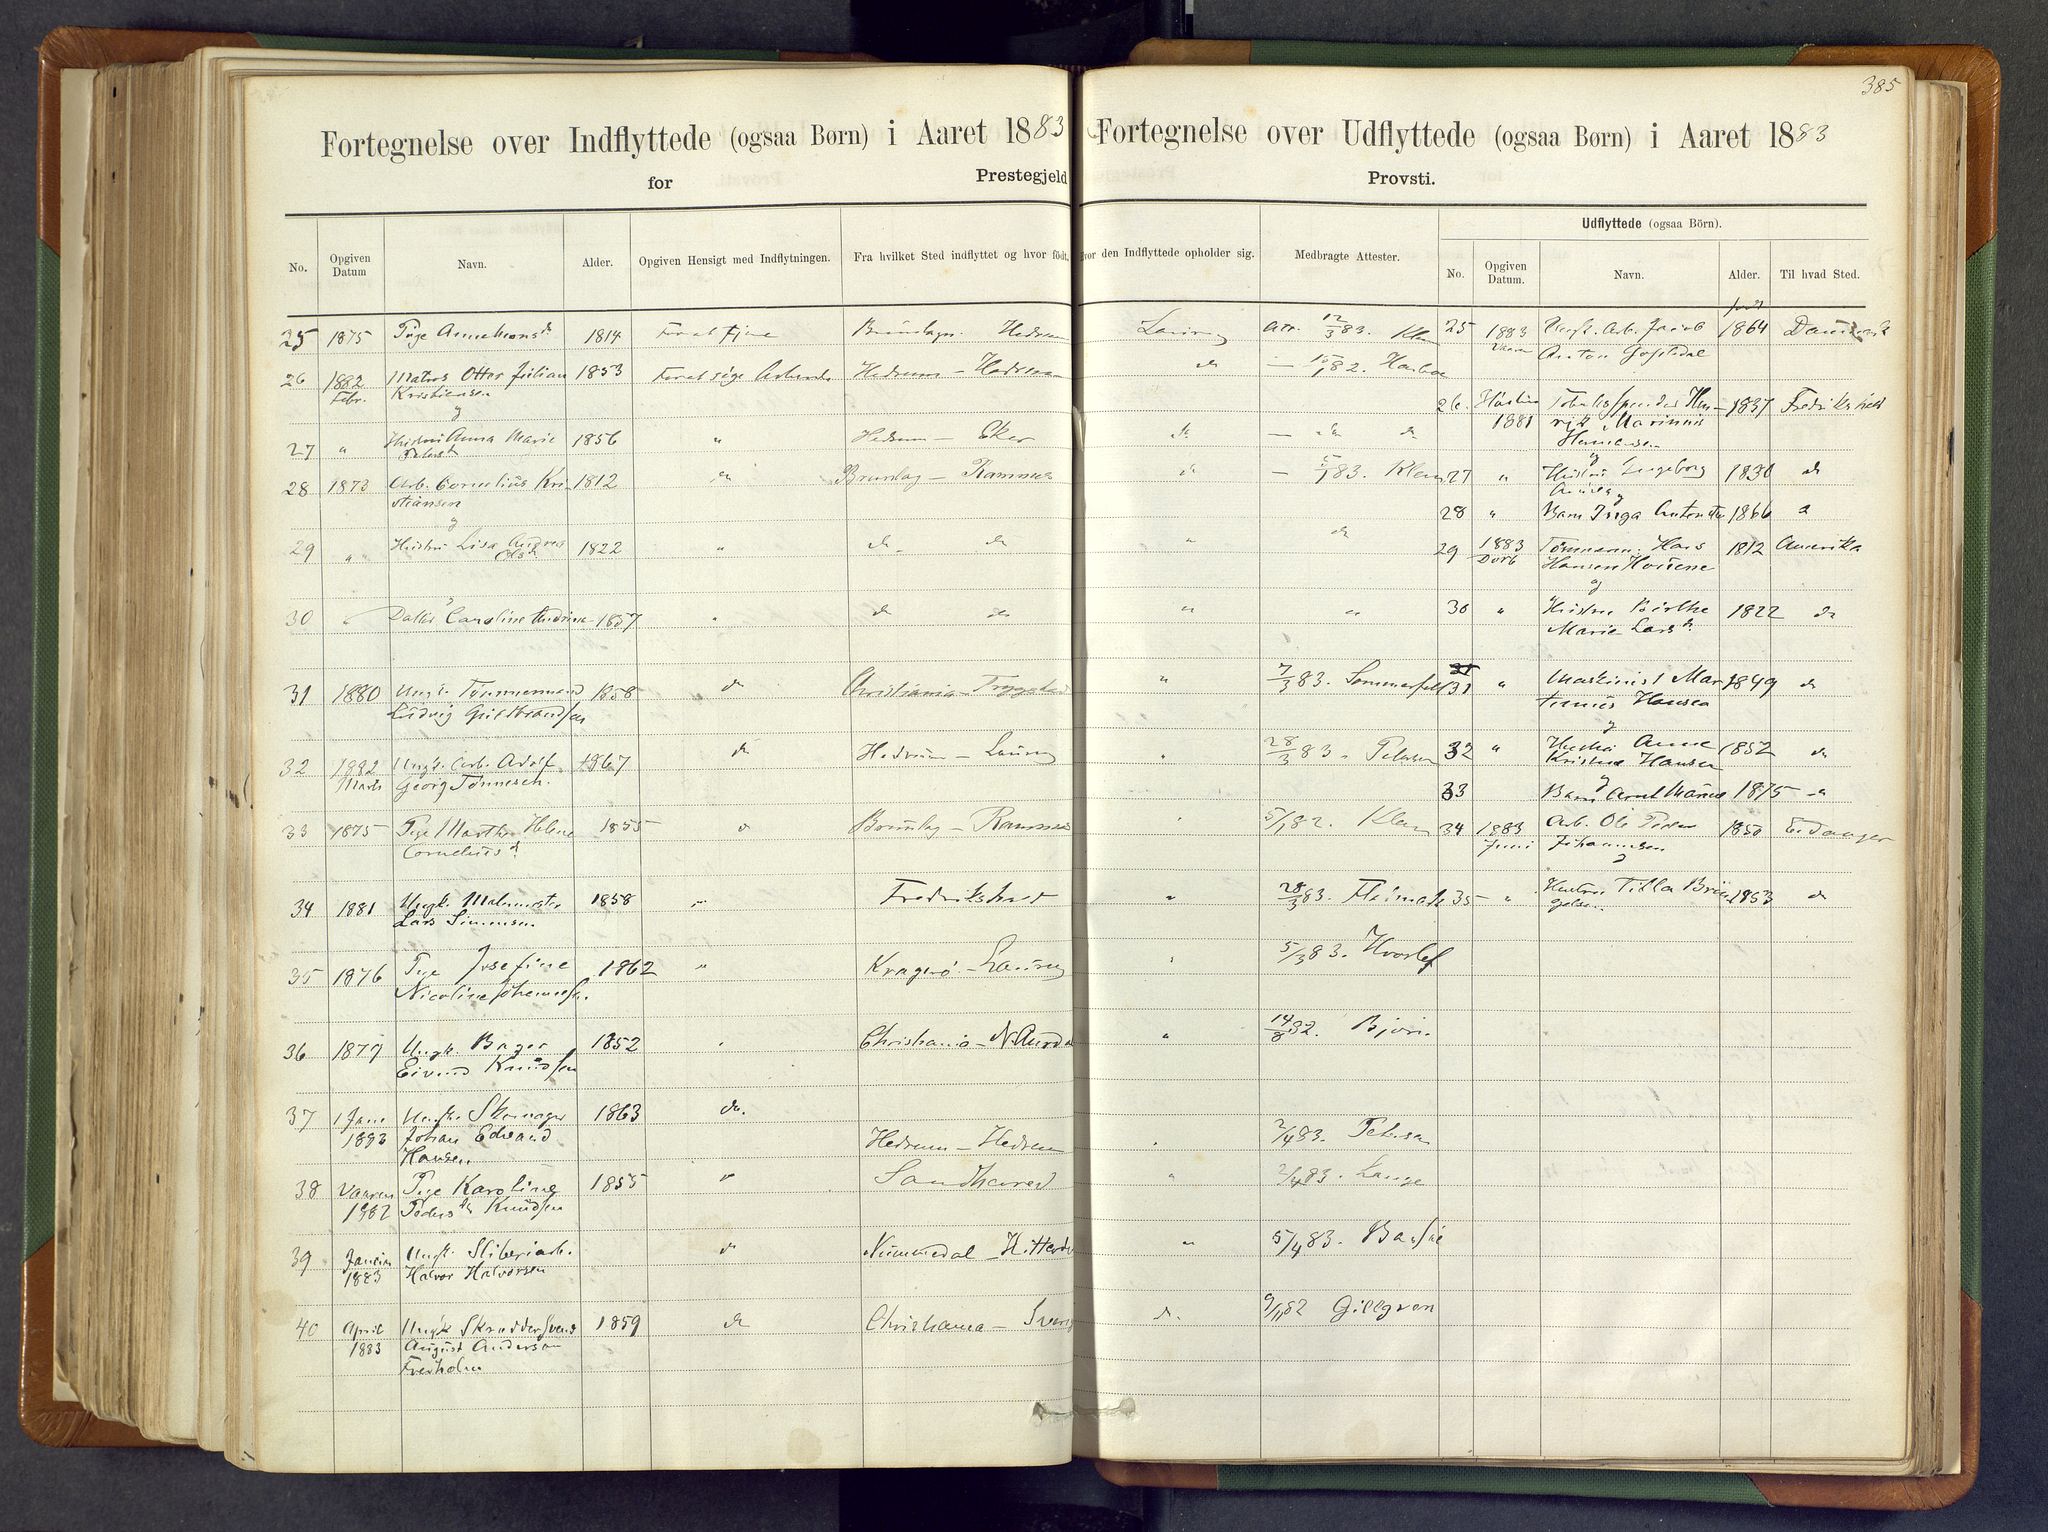 385
Fortegnelse over Indflyttede (ogsaa Børn) i Aaret 1883
for Prestegjeld
No. Opgiven Datum Navn. Alder. Opgiven Hensigt med Indflytningen. Fra hvilket Sted indflyttet og hvor født.
25 1875 Pige 1814 For at tjene Brunlagn. Hedrum
26 1882 Matros Otter Julian 1853 For at søge Arbeide Hedrum - Hedrum
Febr. Kristiensen
og
27 " Hustru Anna Marie 1856 " Hedrum - Eker
28 1873 Arb. Cornelius Kri- 1812 " Brunlag - Ramnes
stiansen
og
29 " Hustru Lisa Andrea 1822 " do do
Olsd
30 " Datter Caroline Andrine 1857 " do do
31 1880 Ungk. Tømmermand 1858 do Christiania - Trygstad
Ludvig Guldbrandsen
32 1882 Ungk. Arb. Adolf 1867 do Hedrum - Laurvig
Marts Georg Tønnesen.
33 1875 Pige Marthe Helene 1855 do Brunlag - Ramnes
Cornelius d.
34 1881 Ungk. 1858 " Fredrikshald
Lars Simensen
35 1876 Pige Josefine 1862 " Kragerø - Laurvig
Nicoline
36 1877 Ungk. Bager 1852 " Christiania - N. Aurdal
Eivind Knudsen
37 Janu Ungk. Skomager 1863 do.
1883 Johan Edvard Hedrum - Hedrum
Hansen
38 Vaaren Pige Karoline 1855 " Sandhered
1882 Peders d. Knudsen
39 Januar Ungk. Sliberiarb. do Nummedal - Hitterdal
1883 Halvor Halvorsen
40 April Ungk. Skrædder Svend 1859 do Christiania - Sverig
1883 August Anderson
Fredholm
Fortegnelse over Udflyttede (ogsaa Børn) i Aaret 1883
Provsti.
Hvor den Indflyttede opholder sig. Medbragte Attester.
Laurvig Att. 12/3 83. Klem
do - 15/1 82. Harboe
do - do do
" - 5/1 83. Klem
" do
" "
" 7/3 83. Sommerfelt
" 28/3 83. Petersen
" 5/1 82. Klem
" 28/3 83.
" 5/3 83. Hvoslef
" 14/8 82.
" 2/4 83. Petersen
" 2/4 83. Lange
" 5/4 83.
do. 9/11 82 Gillgren
Udflyttede (ogsaa Börn).
No. Opgiven Datum. Navn. Alder. Til hvad Sted.
født
25 1883 Ungk. Arb. Jacob 1864 Danmark
Anton
26. Høsten Tobaksspinder Hen- 1837 Fredrikshald
1881 rik Marinus
Hansen
og
27 " Hustru Ingeborg 1830 do
og
28 " Barn Inga 1866 do
29 1883 Tømmerm. Hans 1812 Amerika
Hansen
og
30 " Hustru Birthe 1822 do
Marie Lars d.
31
31 " Maskinist Mar- 1849 do
tinius Hansen
og
32 " Hustru Anne 1852 do
Kristine Hansen
og
33 Barn 1875 "
34 1883 Arb. Ole Peder 1850 Eidanger
Juni Johannsen
og
35 " Hustru Tilla 1853 do